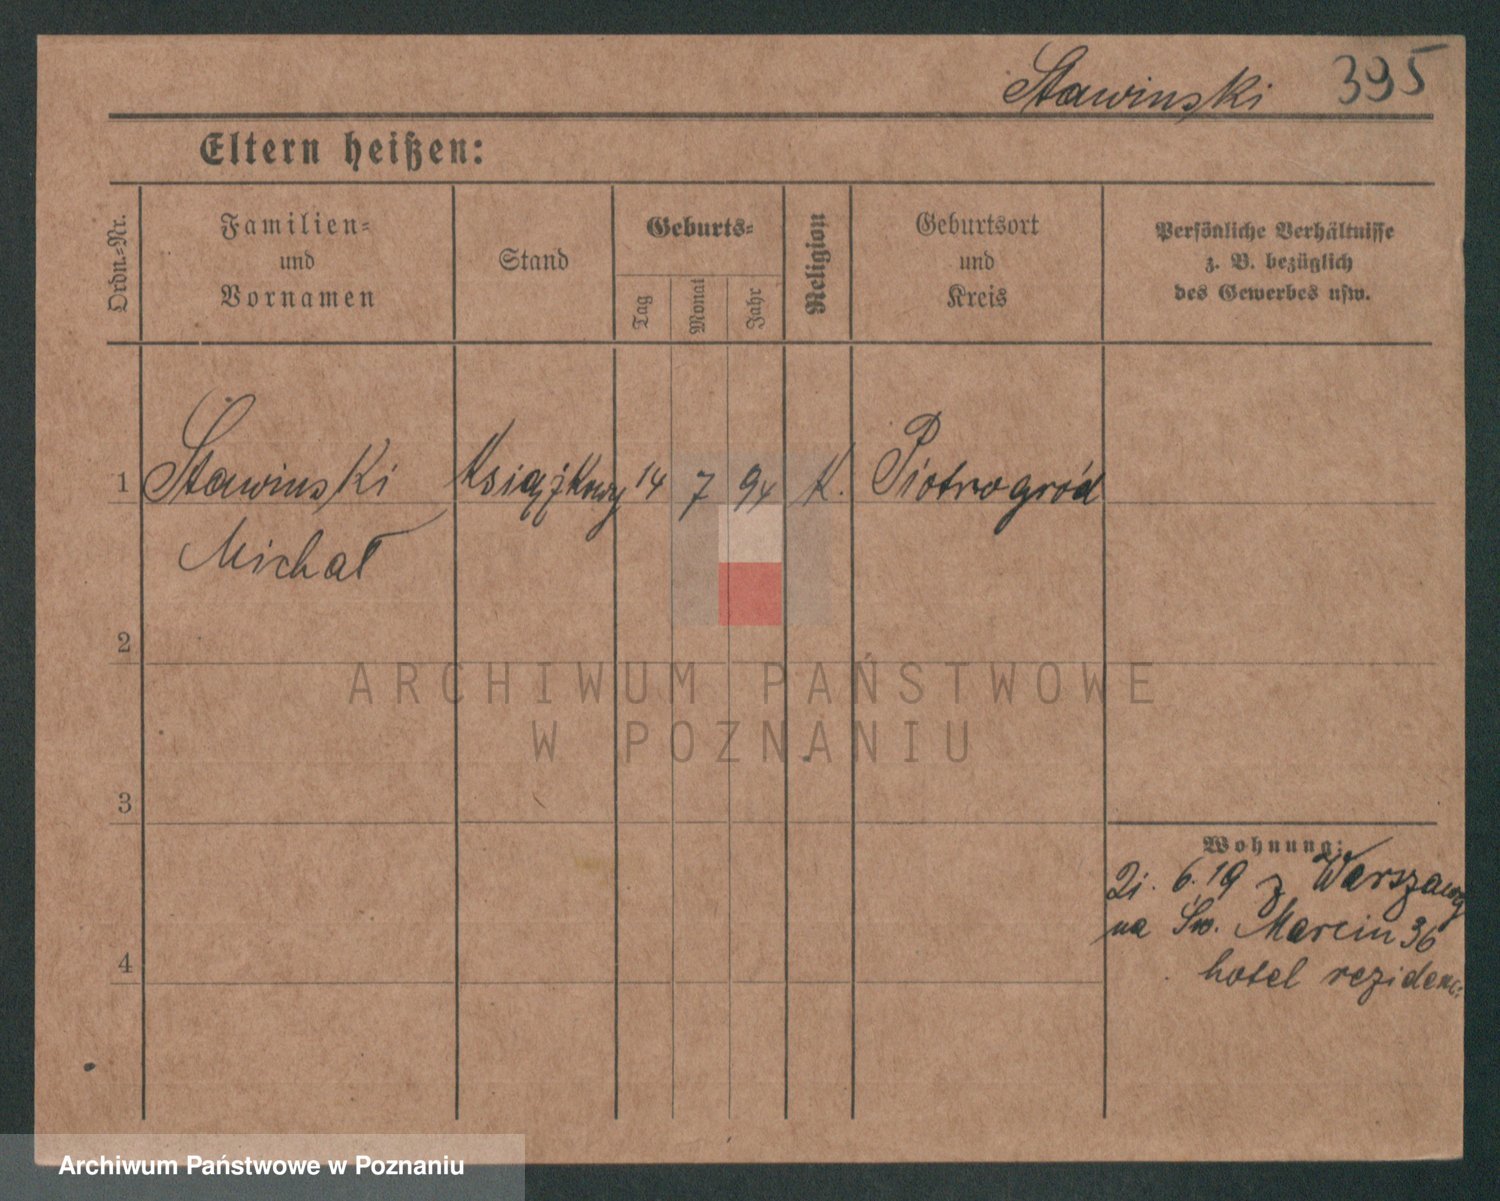 Stawinski 395
Eltern heißen:
Ordn.=Nr.
Familien=
und
Vornamen
Stand
Geburts=
Tag
Monat
Jahr
Religion
Geburtsort
und
Kreis
Persönliche Verhältnisse
z. B. bezüglich
des Gewerbes usw.
1 Stawinski Książkowy 14 7 94 K. Piotrogród
Michał
2
3
4
Wohnung:
21. 6. 19 z Warszawy
na Św. Marcin 36
hotel rezidenc
ARCHIWUM PAŃSTWOWE
W POZNANIU
Archiwum Państwowe w Poznaniu